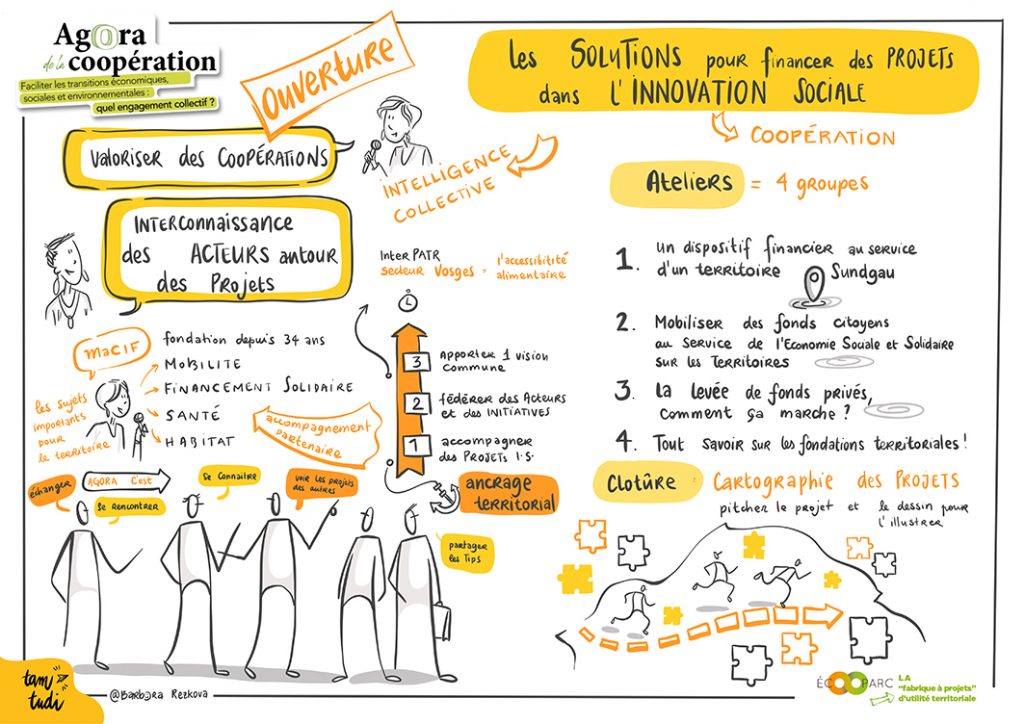 Agora
de la coopération
Faciliter les transitions économiques,
sociales et environnementales :
quel engagement collectif ?
OUVERTURE
Valoriser des COOPÉRATIONS
INTELLIGENCE
COLLECTIVE
INTERconnaissance
des ACTEURS autour
des Projets
MACIF
fondation depuis 34 ans
MOBILITE
FINANCEMENT SOLIDAIRE
SANTÉ
HABITAT
les sujets
importants
pour
le territoire
accompagnement
partenaire
Inter PATR
secteur Vosges = l'accessibitité
alimentaire
3 APPORTER 1 vision
commune
2 fédérer des Acteurs
et des INITIATIVES
1 accompagner
des PROJETS I.S.
ancrage
territorial
échanger
AGORA C'est
Se rencontrer
Se Connaitre
voir les projets
des autres
partager
les Tips
les SOLUTIONS pour financer des PROJETS
dans L'INNOVATION SOCIALE
COOPÉRATION
Ateliers = 4 groupes
1. Un dispositif financier au service
d'un territoire Sundgau
2. Mobiliser des fonds citoyens
au service de l'Economie Sociale et Solidaire
sur les Territoires
3 La levée de fonds privés,
comment ça marche ?
4. Tout savoir sur les fondations territoriales !
Clotûre : Cartographie des PROJETS
pitcher le projet et le dessin pour
l'illustrer
tam
tudi
@Barbora Rezkova
ÉCOOPARC
LA
"fabrique à projets"
d'utilité territoriale